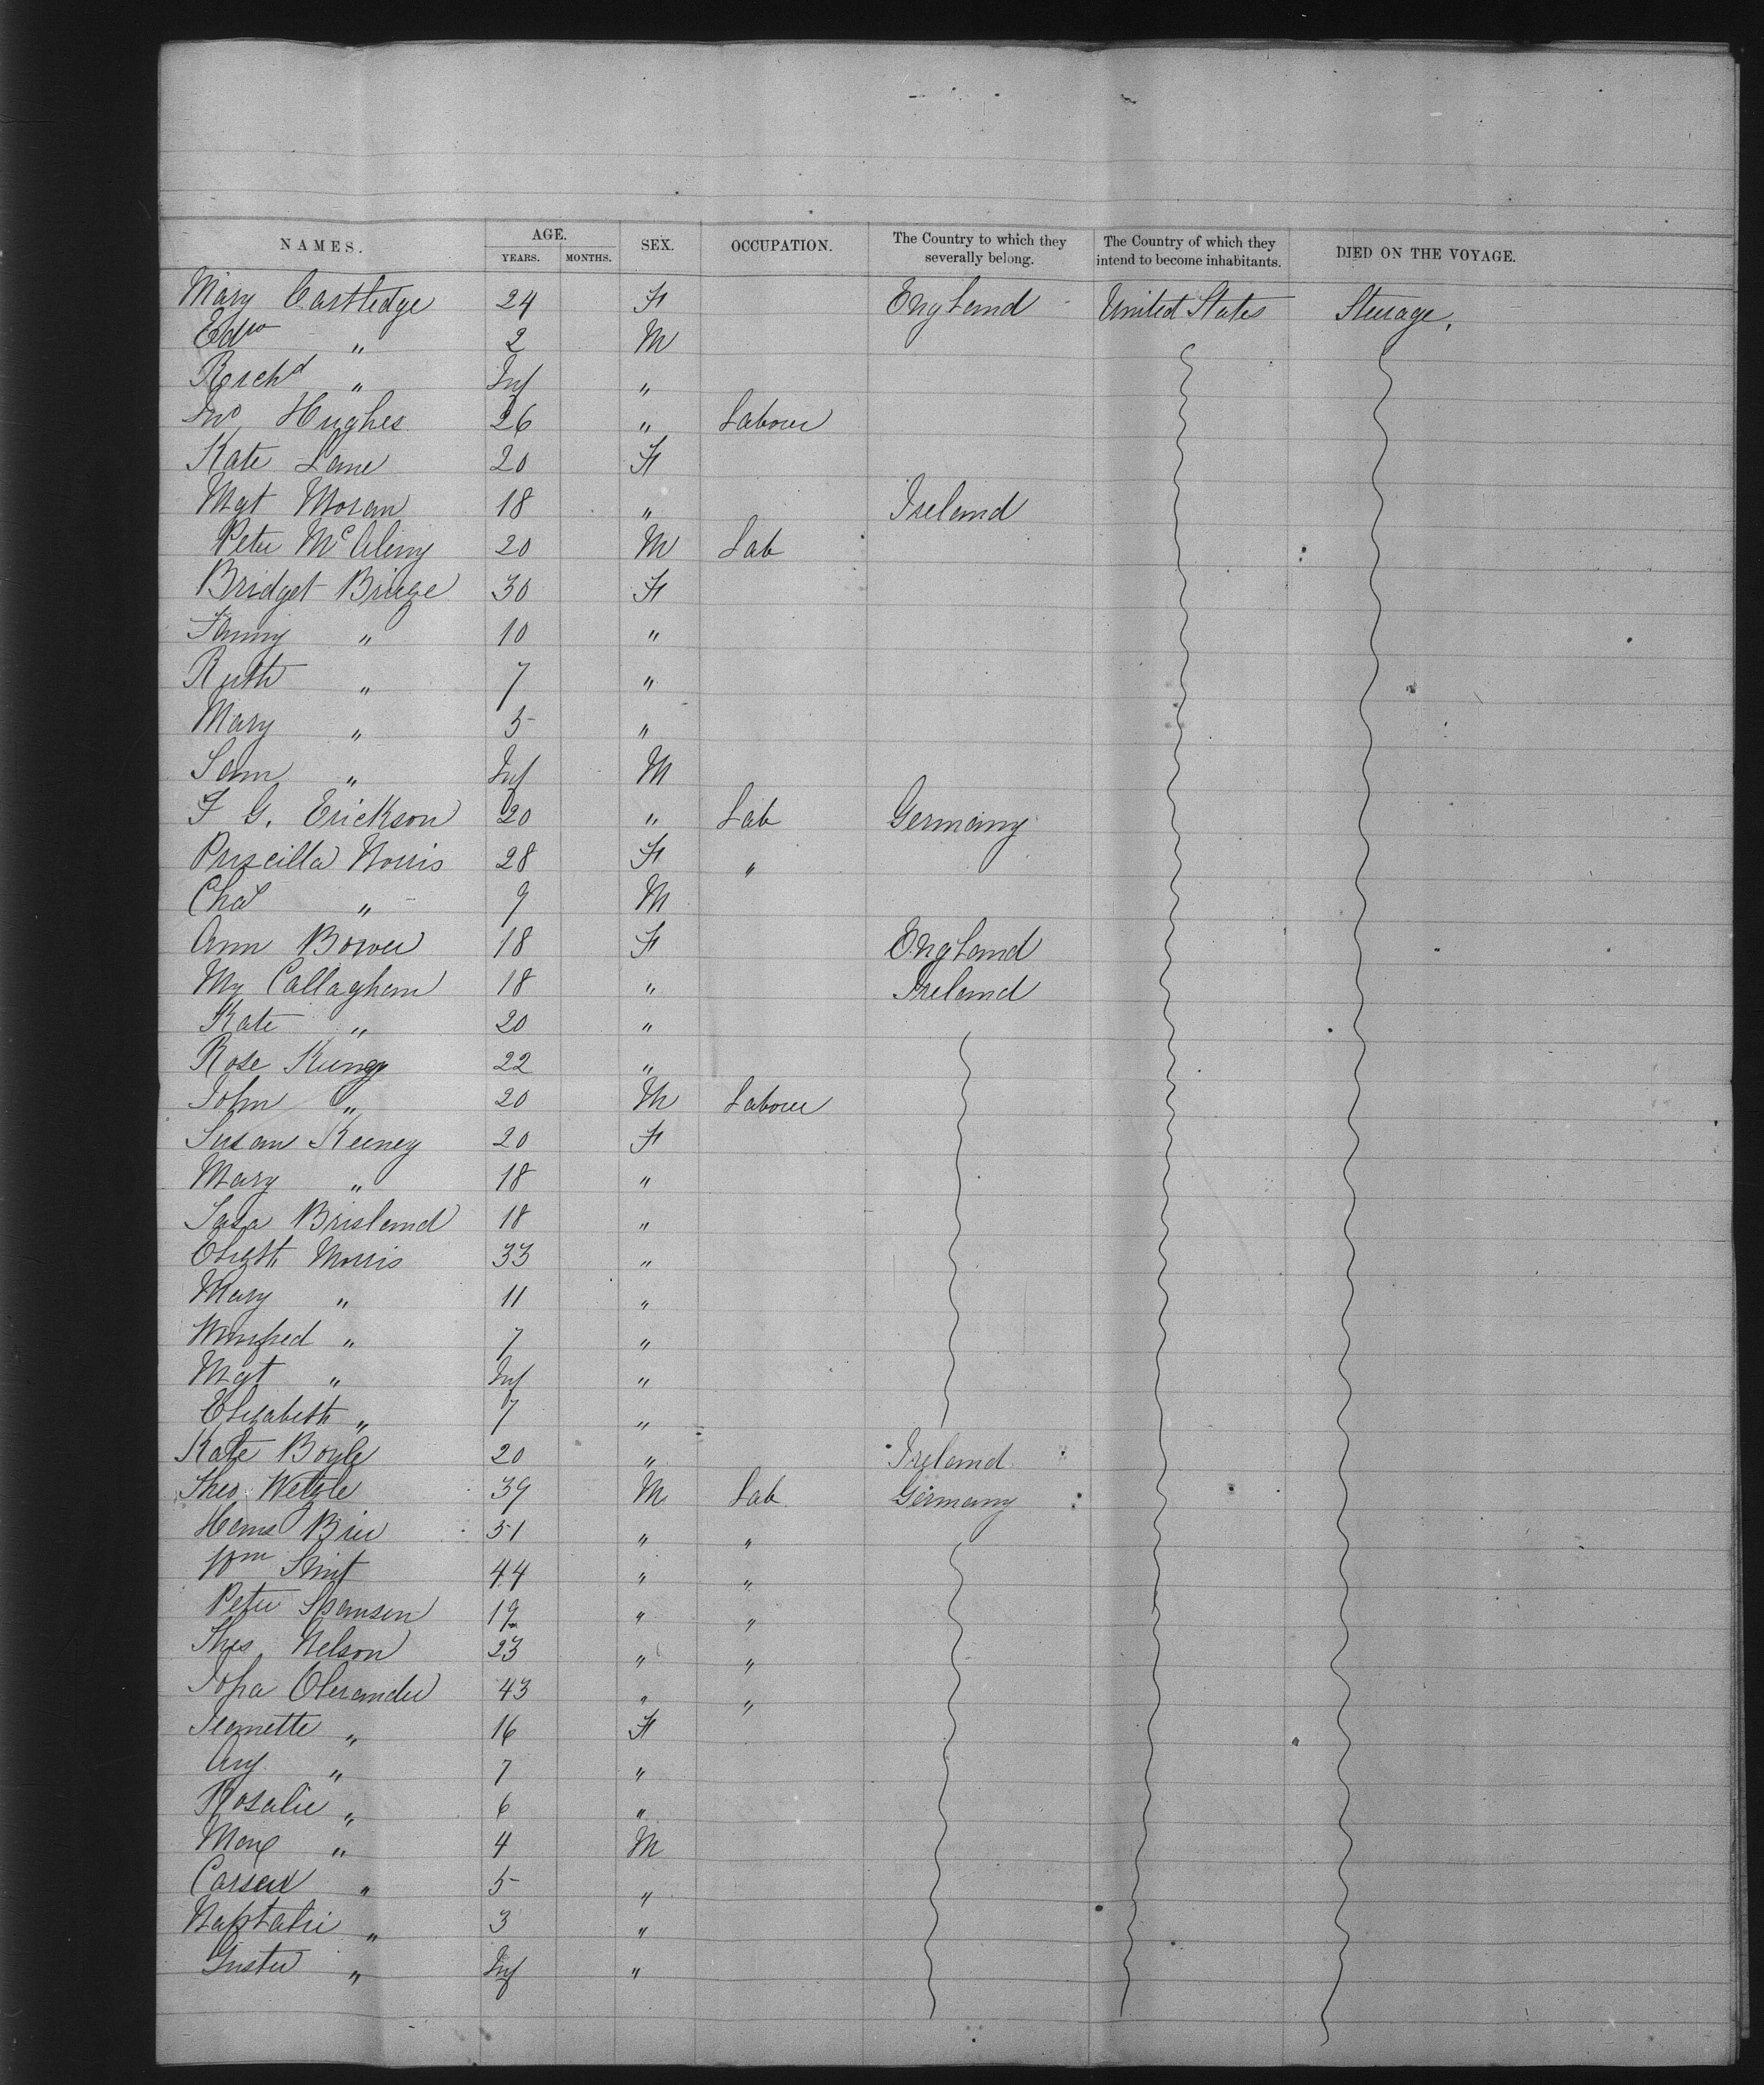 NAMES. AGE. YEARS. MONTHS. SEX. OCCUPATION. The Country to which they severally belong. The Country of which they intend to become inhabitants. DIED ON THE VOYAGE.
Mary Castledge 24 F England United States Steerage.
Edw " 2 M
Richd " Inf "
Jno Hughes 26 " Labour
Kate Lane 20 F
Mgt Moran 18 " Ireland
Peter 20 M Lab
Bridget 30 F
Fanny " 10 "
Ruth " 7 "
Mary " 5 "
Sam " Inf M
F G. Erickson 20 " Lab Germany
Priscilla Norris 28 F "
Chas " 9 M
Ann Bower 18 F England
My Callaghan 18 " Ireland
Kate " 20 "
Rose 22 "
John " 20 M Labour
Susan Keeney 20 F
Mary " 18 "
Brisland 18 "
Elizth Morris 33 "
Mary " 11 "
Winifred " 7 "
Mgt " Inf "
Elizabeth " 7 "
Kate Boyle 20 " Ireland
Theo Wetzle 39 M Lab Germany
Hans 51 " "
Wm 44 " "
Peter 19 " "
Thos Nelson 23 " "
43 " "
Jeanette " 16 F
" 7 "
Rosalie " 6 "
Max " 4 M
" 5 "
Naptalie " 3 "
Guster " Inf "